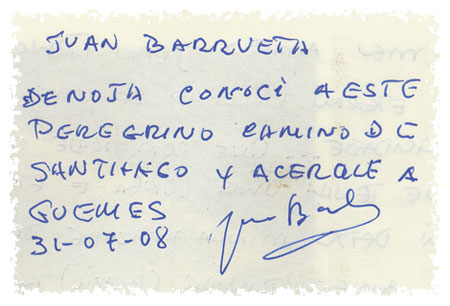 JUAN BARRUETA
DE NOJA CONOCÍ A ESTE
PEREGRINO CAMINO DE
SANTIAGO Y ACERQLE A
GUEMES
31-07-08